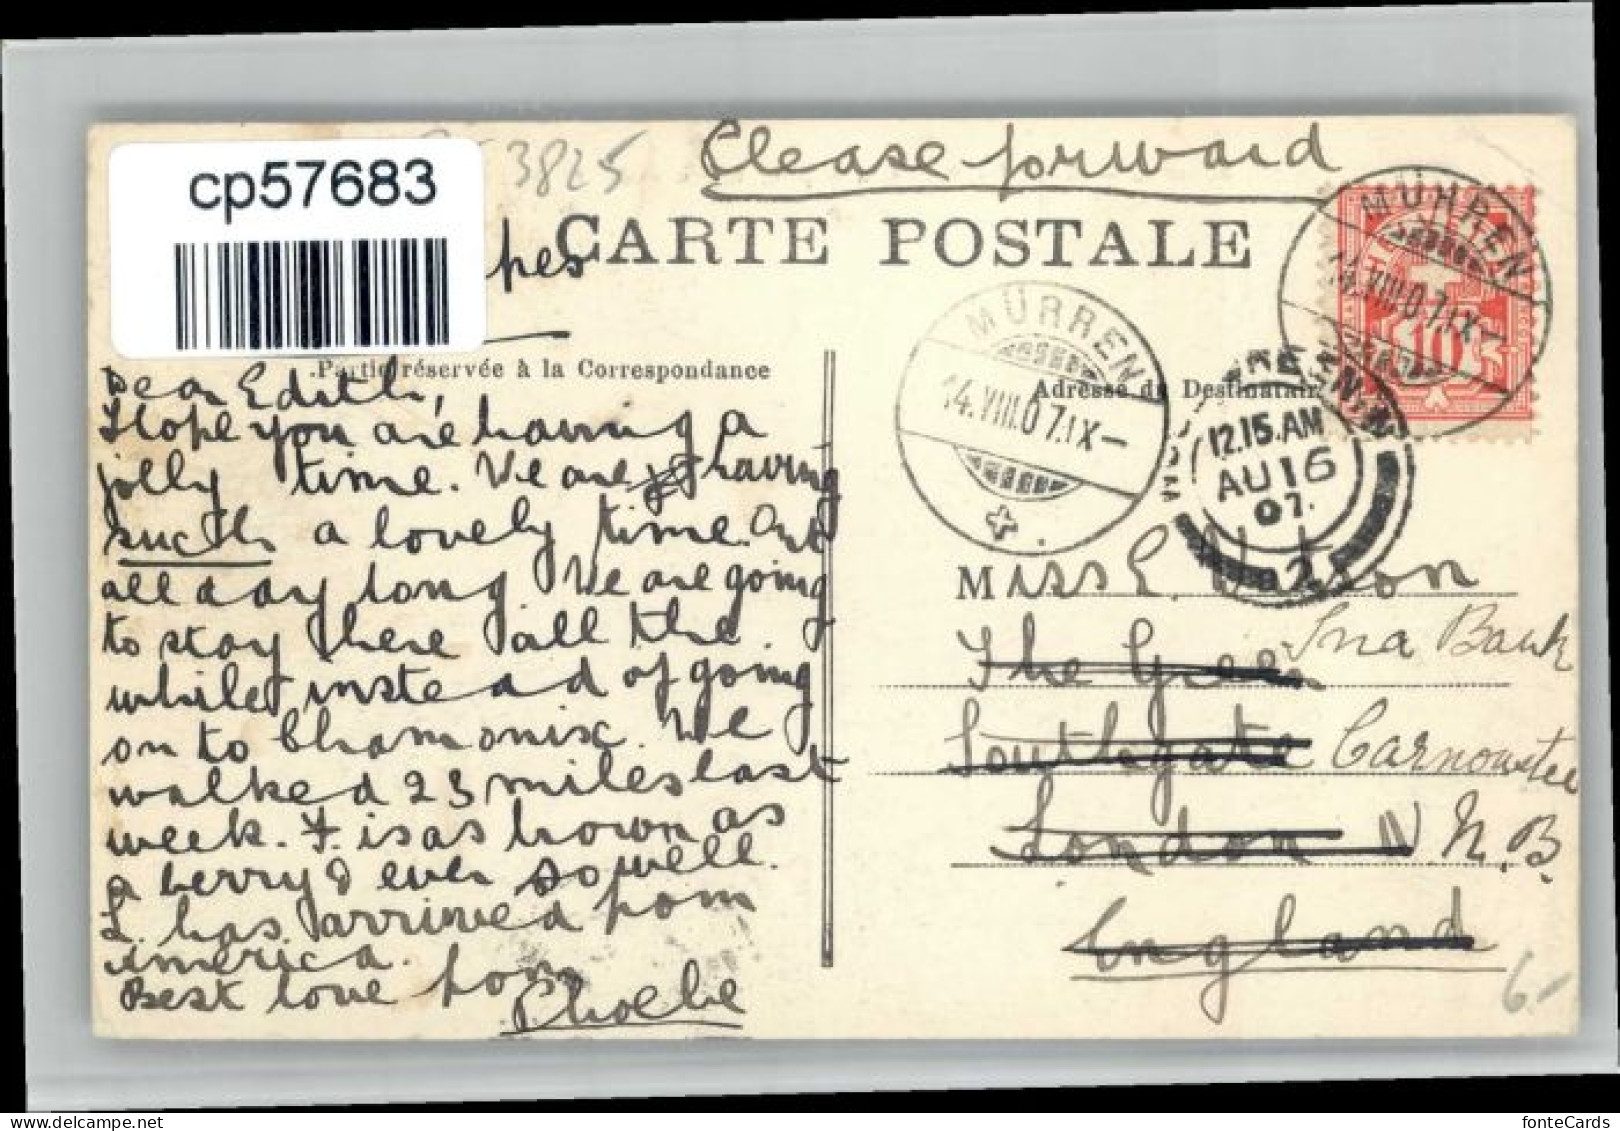 cp57683
3825
Please forward
CARTE POSTALE
MÜRREN
14.VIII.07.IX-
MÜRREN
14.VIII.07.IX-
10
Partie réservée à la Correspondance
Adresse du Destinataire
12.15.AM
AU 16
07.
Dear Edith,
I hope you are having a
jolly time. We are having
such a lovely time. Out
all day long. We are going
to stay here all the
while instead of going
on to Chamonix. We
walked 23 miles last
week. F. is as brown as
a berry & ever so well.
L. has arrived from
America.
Best love from
Phoebe
Miss E. Nixon
The Green
Southgate
London N.
England
Ina Bank
Carnoustee
N.B.
6.-
fonteCards